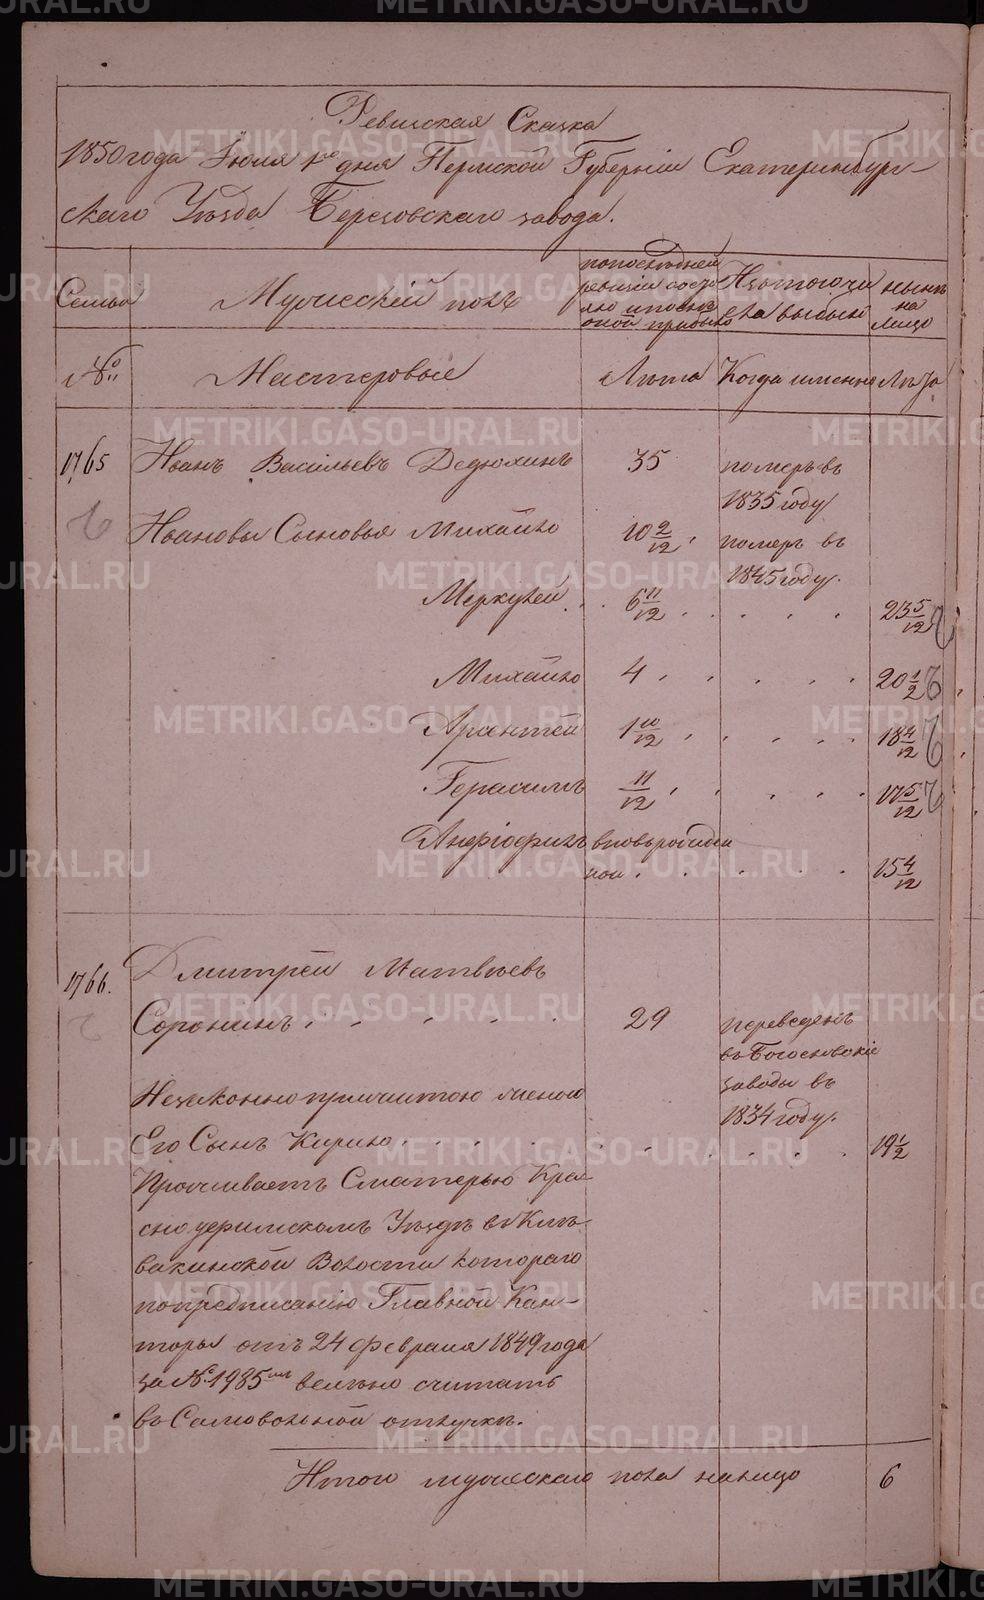 Ревизская Сказка
1850 года Июля 1го дня Пермской Губернiи Екатеринбург-
скаго Уѣзда Березовскаго завода.
Семьи
Мужескiй полъ
по последней
ревизiи состо
яло и после
оной прибыло
Изъ того чи
сла выбыло
нынѣ
на
лицо
№
Мастеровые
Лѣта
Когда именно
Лѣта
1765 Иванъ Васильевъ Дедюхинъ 35 померъ въ
1835 году
Ивановы Сыновья Михайло 10 9/12 померъ въ
1845 году.
Меркулей 6 11/12 23 5/12
Михайло 4 20 1/2
Арлантей 1 10/12 18 4/12
Герасимъ 11/12 17 5/12
вновьрожден
ной 15 4/12
1766. Дмитрей Матвѣевъ
Соронинъ 29 переведенъ
въ Богословскiе
заводы въ
1834 году.
Незаконно прижитою женою
Его Сынъ Кирило 19 1/2
Проживаетъ Сматерью Кра
сноуфимскомъ Уѣздѣ в Клѣ
вакинской Волости котораго
по предписанiю Главной Кан-
торы отъ 24 февраля 1849 года
за №1985мъ велѣно считать
въ Самовольной отлучкѣ.
Итого мужескаго пола налицо 6
METRIKI.GASO-URAL.RU